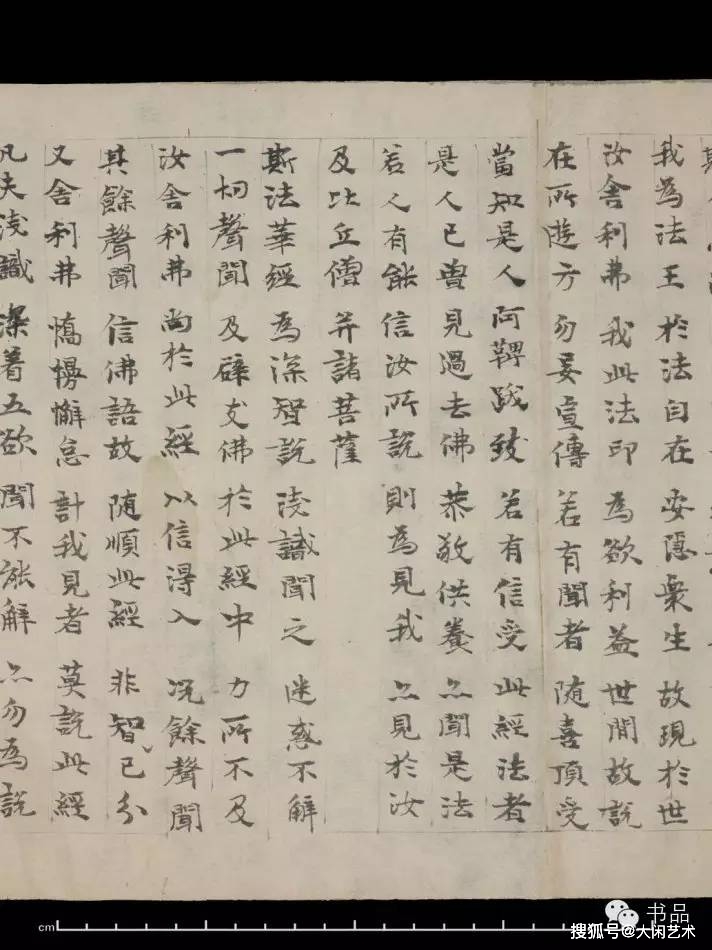 我為法王 於法自在 安隱衆生 故現於世
汝舍利弗 我此法印 為欲利益 世間故說
在所遊方 勿妄宣傳 若有聞者 随喜頂受
當知是人 阿鞞跋致 若有信受 此經法者
是人已曽見過去佛 恭敬供養 亦聞是法
若人有能信汝所說 則為見我 亦見於汝
及比丘僧 并諸菩薩
斯法華經 為深智說 淺識聞之 迷惑不解
一切聲聞 及辟支佛 於此經中 力所不及
汝舍利弗 尚於此經 以信得入 况餘聲聞
其餘聲聞 信佛語故 随順此經 非智已分
又舍利弗 憍慢懈怠 計我見者 莫說此經
凡夫淺識 深着五欲 聞不能解 亦勿為說
cm
书品
搜狐号@大闲艺术